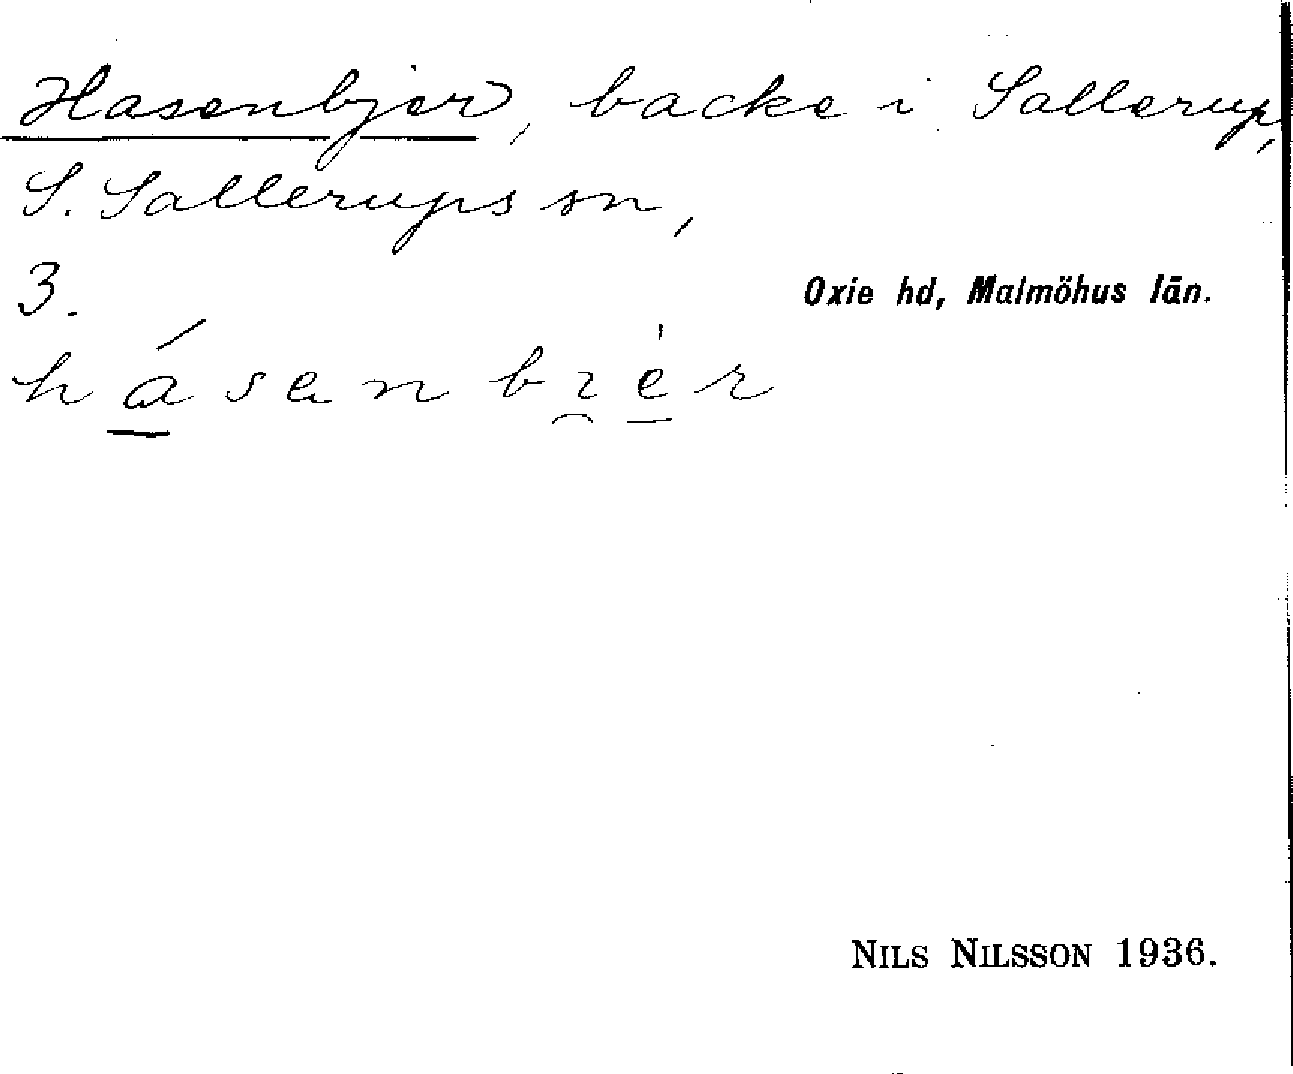 Hasenbjer, backe i Sallerup,
S. Sallerups sn,
3.
Oxie hd, Malmöhus län.
hásenbi̯èr
NILS NILSSON 1936.